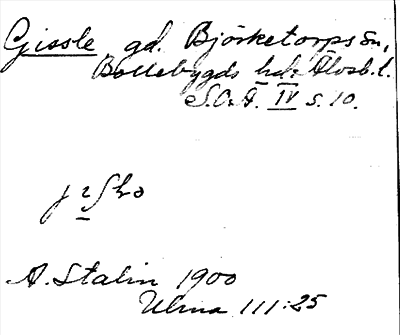 Gissle gd. Björketorps sn,
Bollebygds hd. Älvsb. l.
S.O.Ä. IV s. 10.
A. Stalin 1900
Ulma 111:25